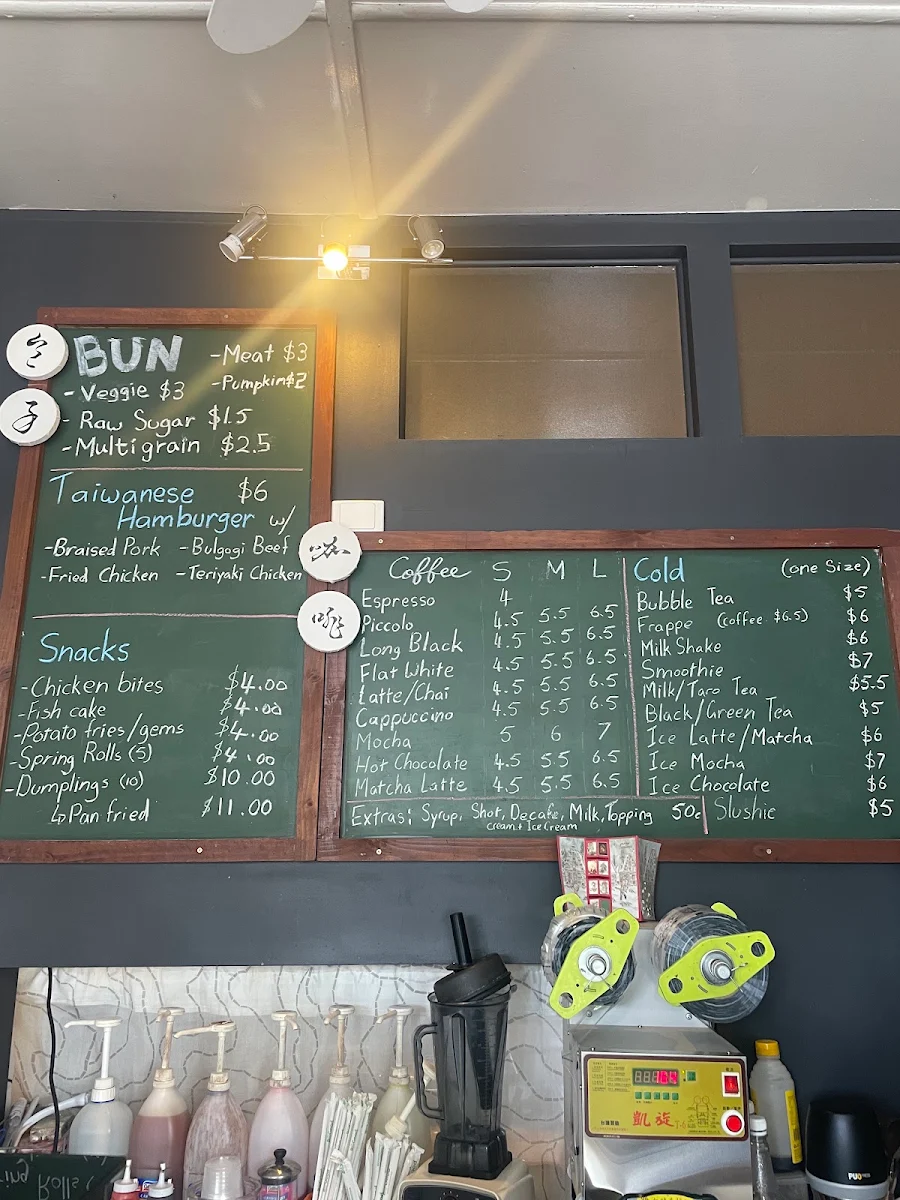 包
子
BUN - Meat $3
- Veggie $3 - Pumpkin $2
- Raw Sugar $1.5
- Multigrain $2.5
Taiwanese $6
Hamburger w/
- Braised Pork - Bulgogi Beef
- Fried Chicken - Teriyaki Chicken
Snacks
- Chicken bites $4.00
- Fish cake $4.00
- Potato fries/gems $4.00
- Spring Rolls (5) $4.00
- Dumplings (10) $10.00
↳ Pan fried $11.00
咖
啡
Coffee S M L
Espresso 4
Piccolo 4.5 5.5 6.5
Long Black 4.5 5.5 6.5
Flat White 4.5 5.5 6.5
Latte/Chai 4.5 5.5 6.5
Cappuccino 4.5 5.5 6.5
Mocha 5 6 7
Hot Chocolate 4.5 5.5 6.5
Matcha Latte 4.5 5.5 6.5
Extras: Syrup, Shot, Decafe, Milk, Topping 50c
cream + Ice Cream
Cold (one Size)
Bubble Tea $5
Frappe (coffee $6.5) $6
Milk Shake $6
Smoothie $7
Milk/Taro Tea $5.5
Black/Green Tea $5
Ice Latte/Matcha $6
Ice Mocha $7
Ice Chocolate $6
Slushie $5
凱旋